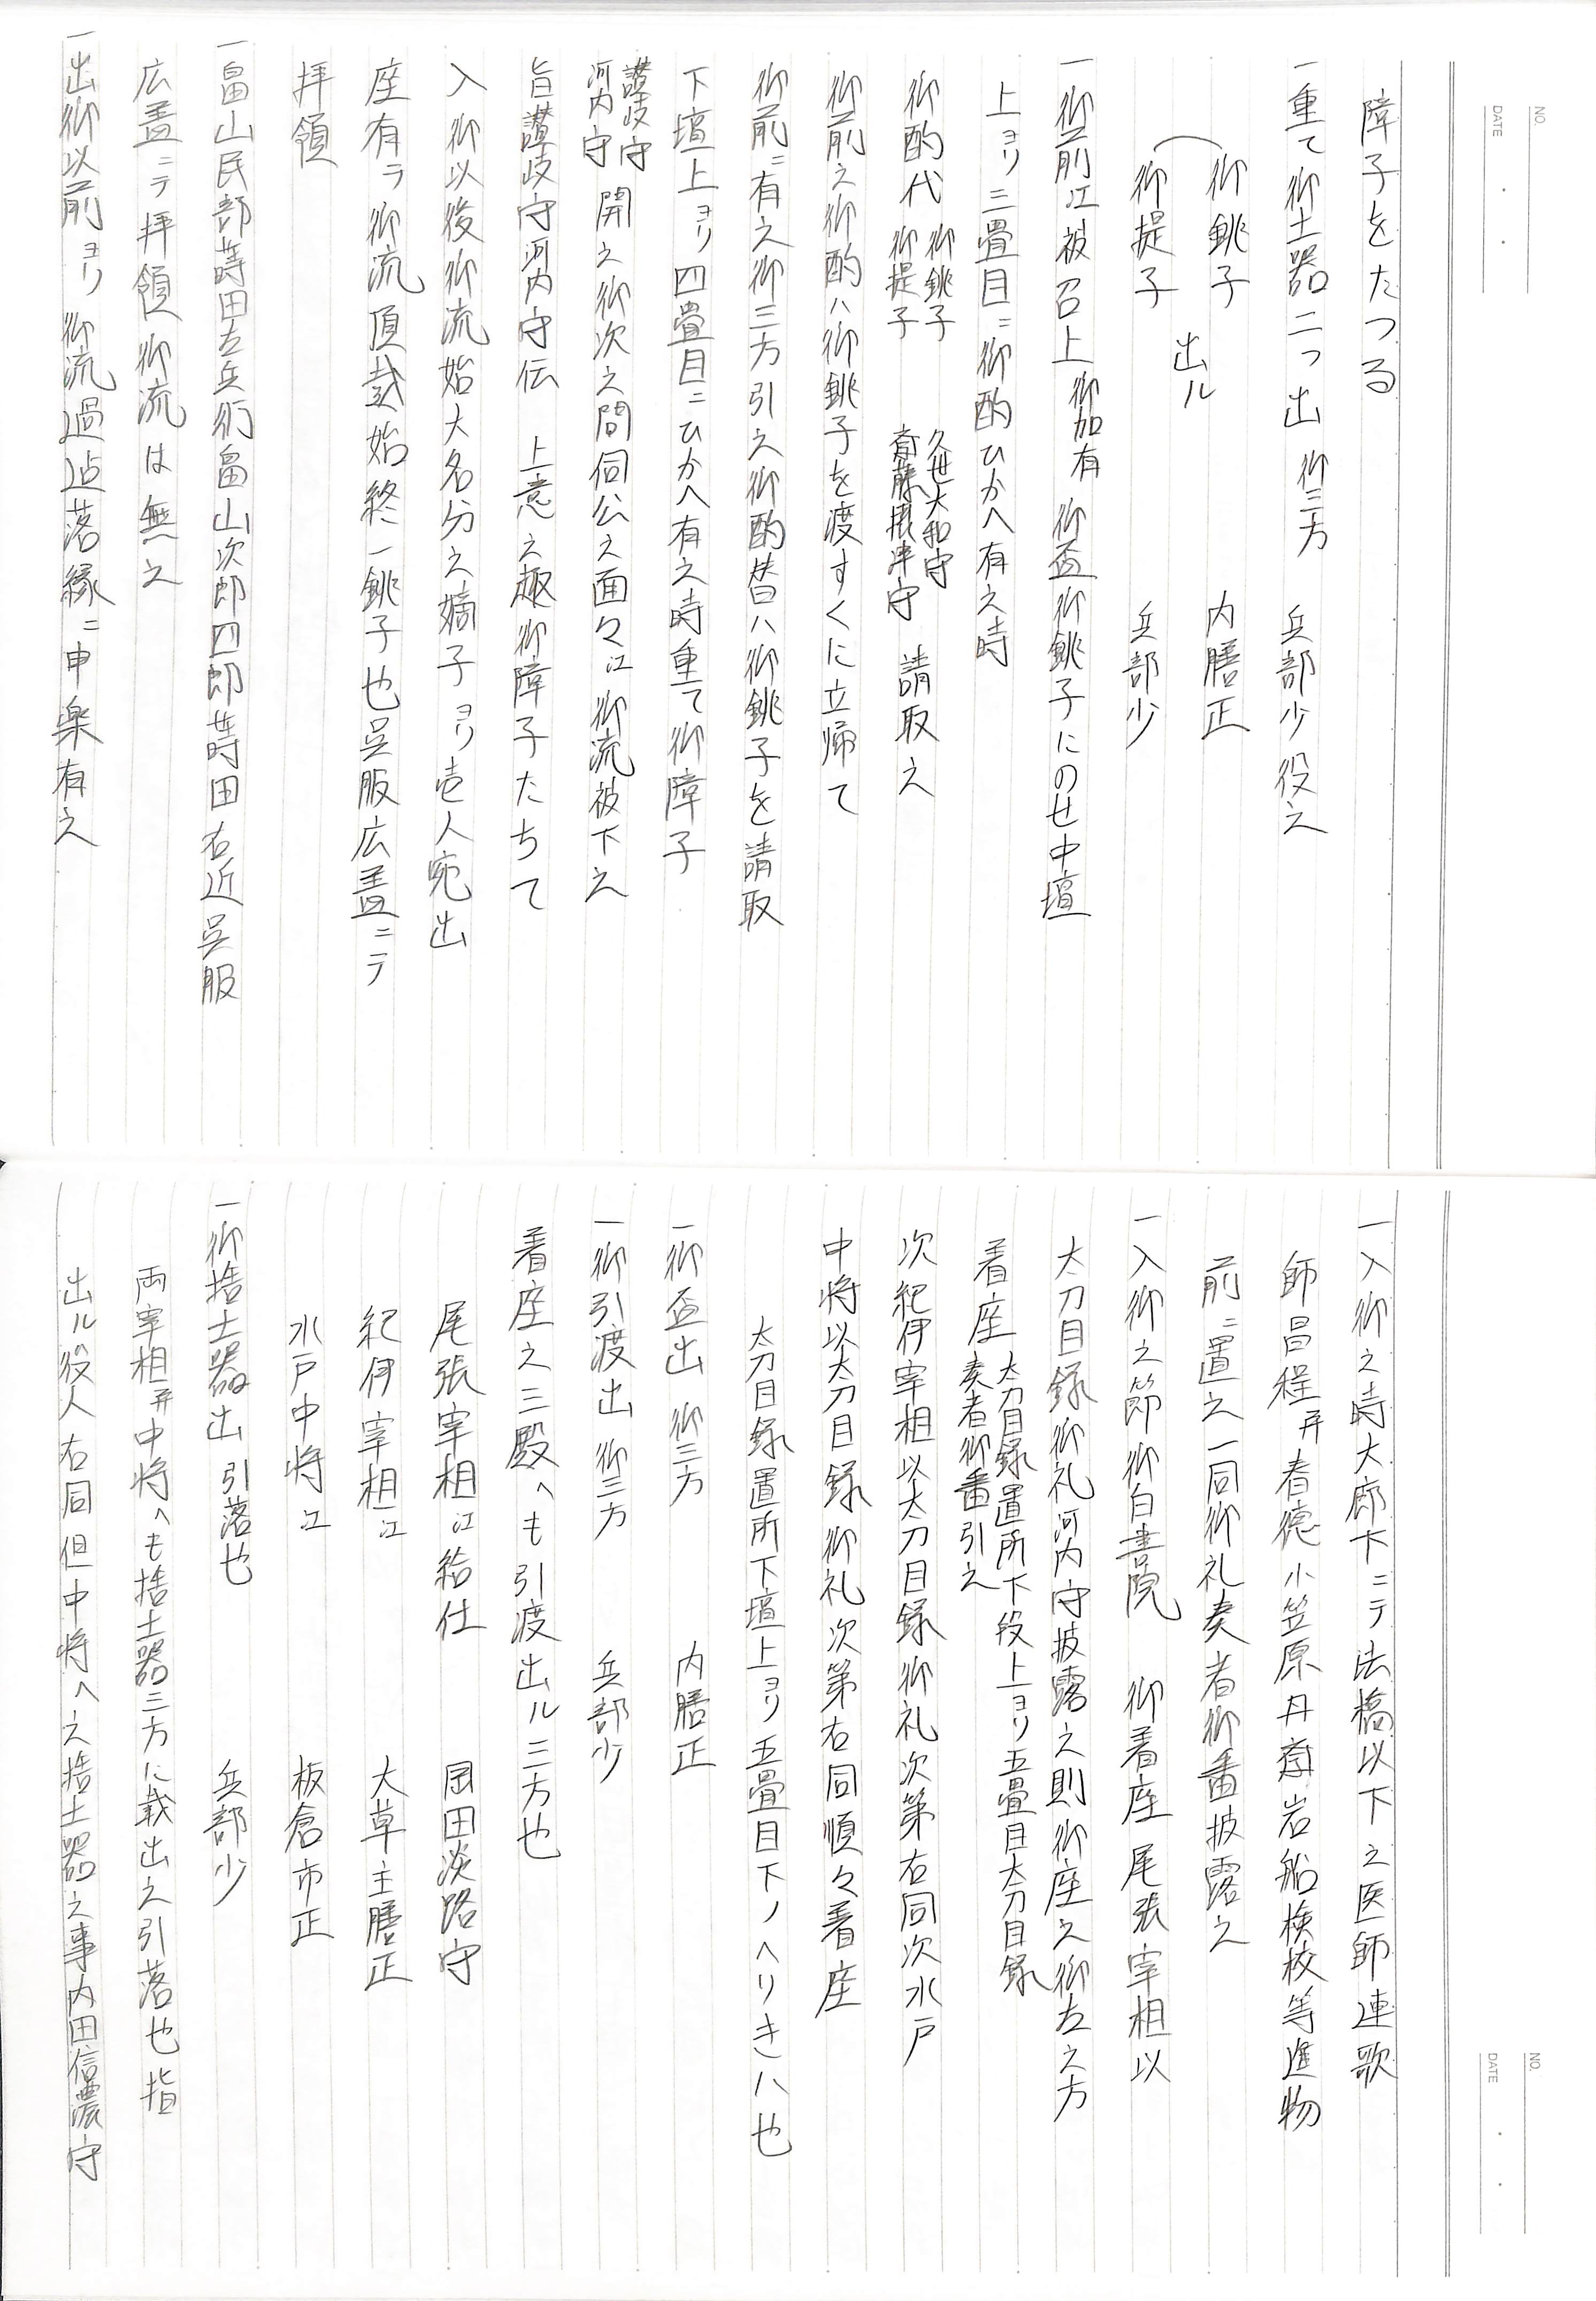 NO.
DATE
障子をたつる
一重て御土器二つ出 御三方 兵部少役之
御銚子 内膳正
出ル
御提子 兵部少
一御前江被召上 御加有 御盃御銚子にのせ中壇
上ヨリ三畳目ニ御酌ひかへ有之時
御酌代 御銚子 久世大和守
御提子 斎藤摂津守 請取之
御前之御酌ハ御銚子を渡すくに立帰て
御前ニ有之御三方引之御酌替ハ御銚子を請取
下壇上ヨリ四畳目ニひかへ有之時重て御障子
讃岐守
河内守 開之御次之間伺公之面々江御流被下之
旨讃岐守河内守伝 上意之趣御障子たちて
入御以後御流始大名分之嫡子ヨリ壱人宛出
座有ラ御流頂戴始終一銚子也呉服広蓋ニテ
拝領
一畠山民部蒔田左兵衛畠山次郎四郎蒔田右近呉服
広蓋ニテ拝領御流は無之
一出御以前ヨリ御流過迠落縁ニ申楽有之
NO.
DATE
一入御之時大廊下ニテ法橋以下之医師連歌
師昌程并春徳小笠原丹斎岩船検校等進物
前ニ置之一同御礼奏者御番披露之
一入御之節御白書院 御着座尾張宰相以
太刀目録御礼河内守披露之則御座之御左之方
着座 太刀目録置所下段上ヨリ五畳目太刀目録
奏者御番引之
次紀伊宰相以太刀目録御礼次第右同次水戸
中将以太刀目録御礼次第右同順々着座
太刀目録置所下壇上ヨリ五畳目下ノへりきハ也
一御盃出 御三方 内膳正
一御引渡出 御三方 兵部少
着座之三殿へも引渡出ル三方也
尾張宰相江給仕 岡田淡路守
紀伊宰相江 大草主膳正
水戸中将江 板倉市正
一御捨土器出 引落也 兵部少
両宰相并中将へも捨土器三方に載出之引落也指
出ル役人右同但中将へ之捨土器之事内田信濃守